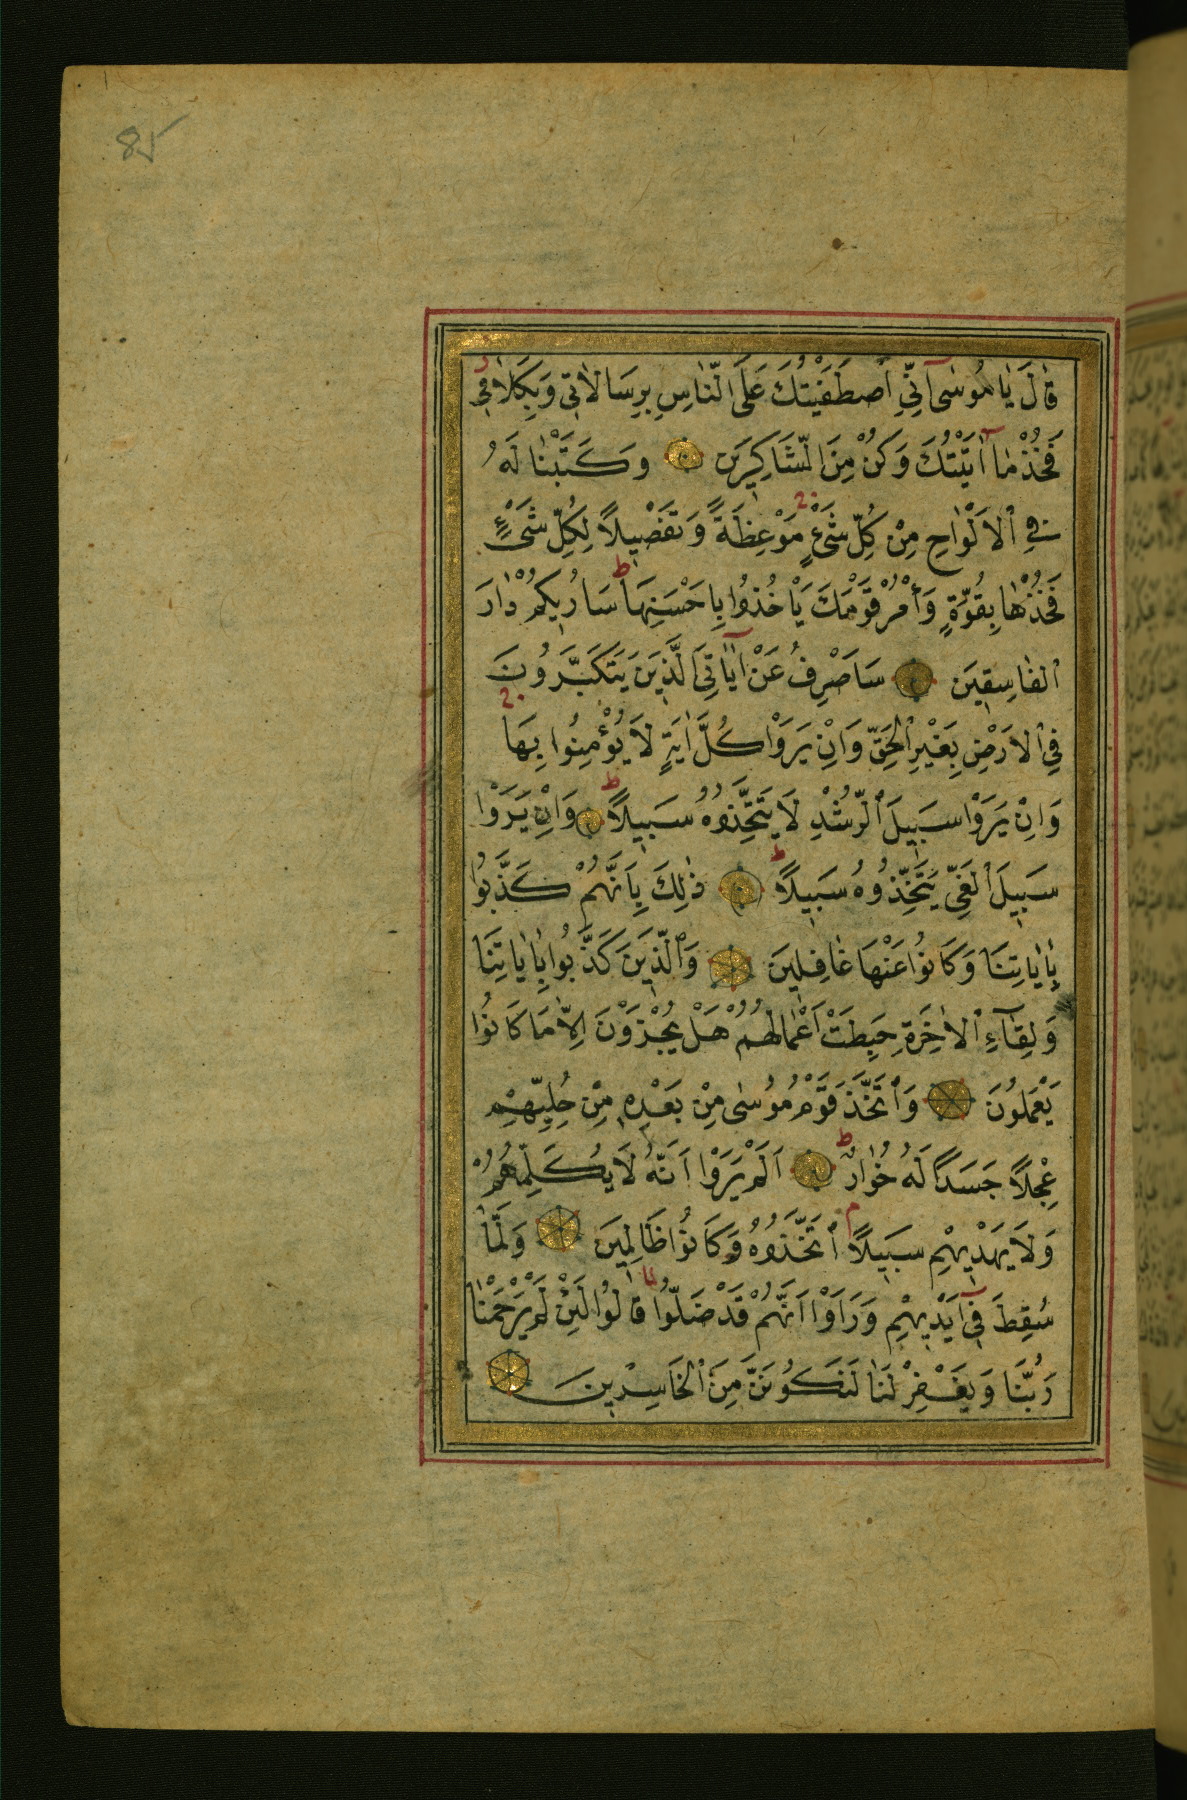 85
قَالَ يَا مُوسٰى اِنِّي اصْطَفَيْتُكَ عَلَى النَّاسِ بِرِسَالَاتِي وَبِكَلَامِي
فَخُذْ مَا اٰتَيْتُكَ وَكُنْ مِنَ الشَّاكِرِينَ وَكَتَبْنَا لَهُ
فِي الْاَلْوَاحِ مِنْ كُلِّ شَيْءٍ مَوْعِظَةً وَتَفْصِيلًا لِكُلِّ شَيْءٍ
فَخُذْهَا بِقُوَّةٍ وَأْمُرْ قَوْمَكَ يَاْخُذُوا بِاَحْسَنِهَا ط سَاُرِيكُمْ دَارَ
الْفَاسِقِينَ سَاَصْرِفُ عَنْ اٰيَاتِيَ الَّذِينَ يَتَكَبَّرُونَ
فِي الْاَرْضِ بِغَيْرِ الْحَقِّ وَاِنْ يَرَوْا كُلَّ اٰيَةٍ لَا يُؤْمِنُوا بِهَا
وَاِنْ يَرَوْا سَبِيلَ الرُّشْدِ لَا يَتَّخِذُوهُ سَبِيلًا ط وَاِنْ يَرَوْا
سَبِيلَ الْغَيِّ يَتَّخِذُوهُ سَبِيلًا ط ذٰلِكَ بِاَنَّهُمْ كَذَّبُوا
بِاٰيَاتِنَا وَكَانُوا عَنْهَا غَافِلِينَ وَالَّذِينَ كَذَّبُوا بِاٰيَاتِنَا
وَلِقَاءِ الْاٰخِرَةِ حَبِطَتْ اَعْمَالُهُمْ هَلْ يُجْزَوْنَ اِلَّا مَا كَانُوا
يَعْمَلُونَ وَاتَّخَذَ قَوْمُ مُوسٰى مِنْ بَعْدِهِ مِنْ حُلِيِّهِمْ
عِجْلًا جَسَدًا لَهُ خُوَارٌ ط اَلَمْ يَرَوْا اَنَّهُ لَا يُكَلِّمُهُمْ
وَلَا يَهْدِيهِمْ سَبِيلًا م اتَّخَذُوهُ وَكَانُوا ظَالِمِينَ وَلَمَّا
سُقِطَ فِي اَيْدِيهِمْ وَرَاَوْا اَنَّهُمْ قَدْ ضَلُّوا لا قَالُوا لَئِنْ لَمْ يَرْحَمْنَا
رَبُّنَا وَيَغْفِرْ لَنَا لَنَكُونَنَّ مِنَ الْخَاسِرِينَ